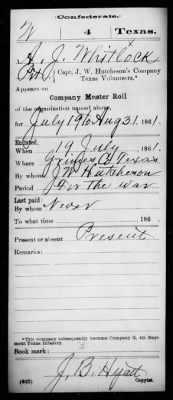 Confederate.
W 4 Texas.
A. J. Whitlock
Pvt, Capt. J. W. Hutcheson's Company
Texas Volunteers.*
Appears on
Company Muster Roll
of the organization named above,
for July 19 to Aug 31, 1861.
Enlisted:
When 19 July, 1861.
Where Grimes Co. Texas
By whom J. W. Hutcheson
Period For the war
Last paid:
By whom Never
To what time , 186 .
Present or absent Present
Remarks:
*This company subsequently became Company G, 4th Regiment Texas Infantry.
Book mark:
J. B. Hyatt
(642) Copyist.